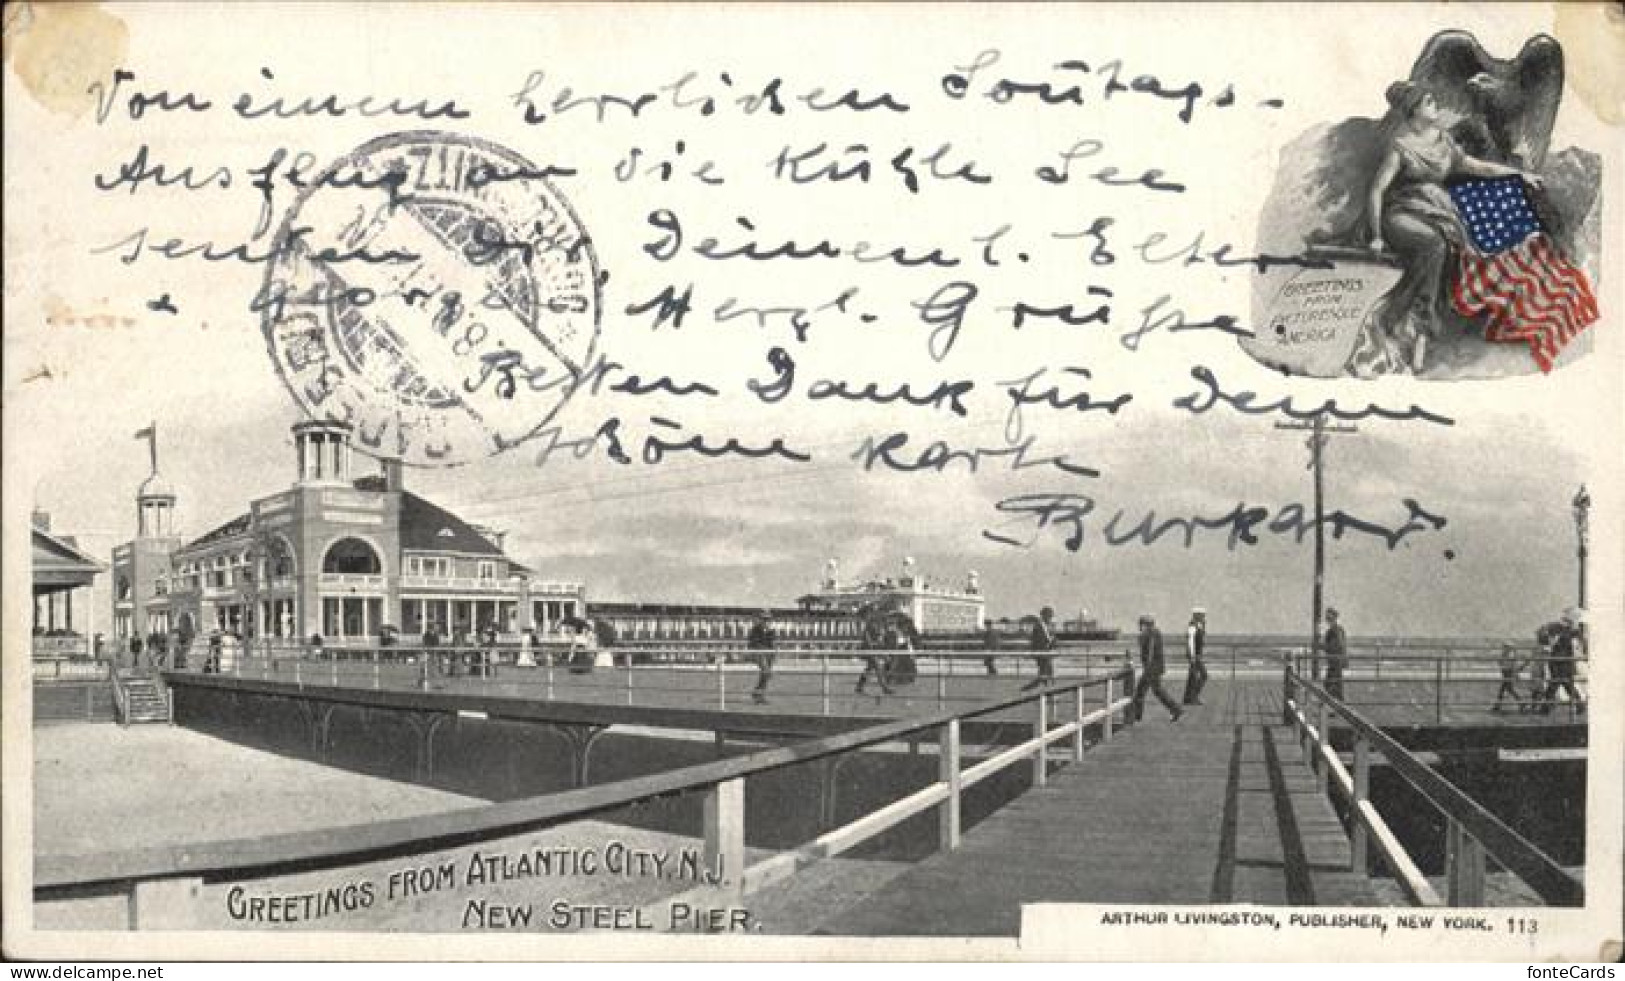 Von einem herrlichen Sontags-
Ausflug an die Kühle See
senden Dir, Deinen l. Eltern
+ Georges Herzl. Grüsse.
Besten Dank für Deine
schöne Karte
Burkard.
GREETINGS
FROM
PICTURESQUE
AMERICA
GREETINGS FROM ATLANTIC CITY, N.J.
NEW STEEL PIER.
ARTHUR LIVINGSTON, PUBLISHER, NEW YORK. 113
fonteCards